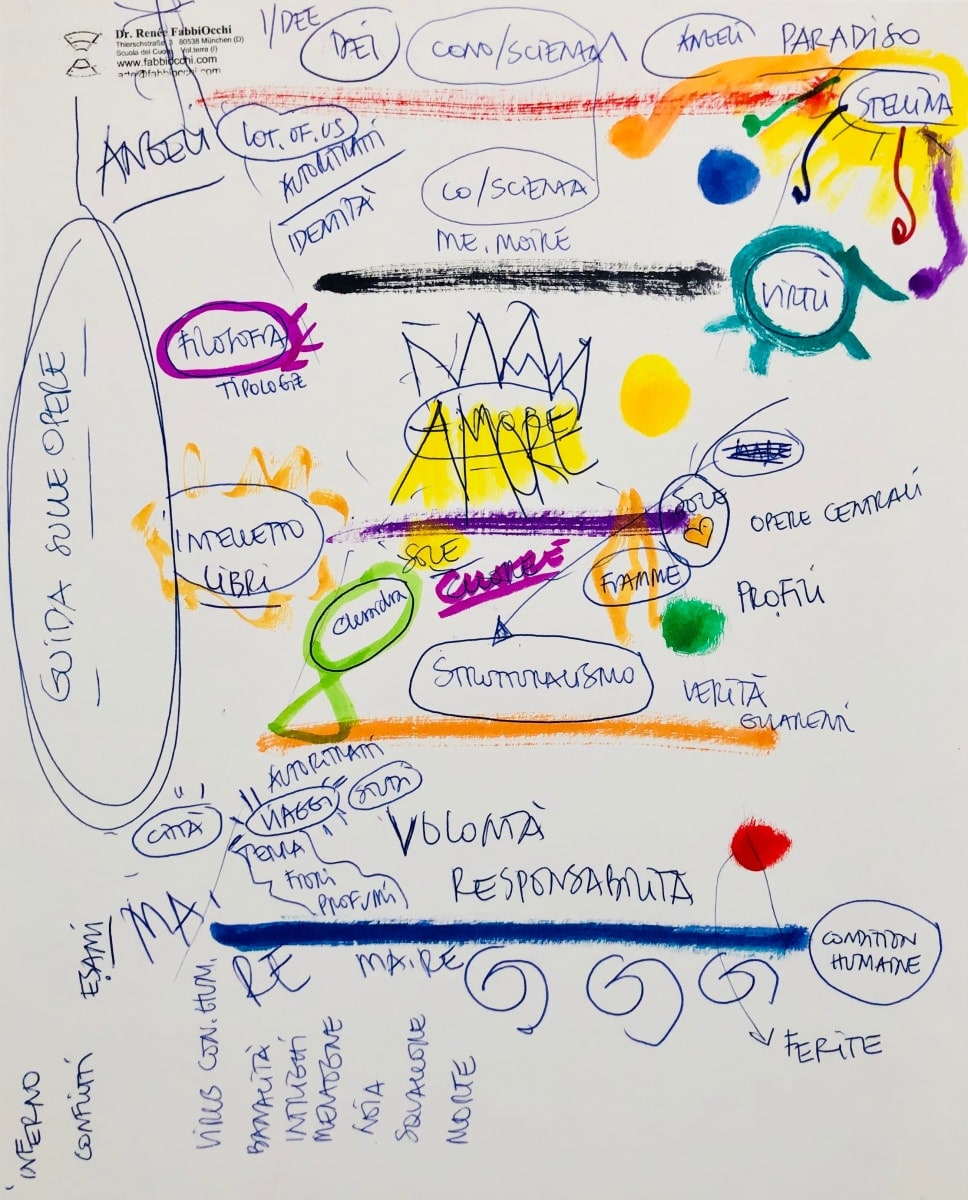 Dr. Renée FabbiOcchi
Thierschstraße 3 80538 München (D)
Scuola del Cuore Volterra (I)
www.fabbiocchi.com
arte@fabbiocchi.com
I/DEE
DEI
CONO/SCIENZA
ANGELI
PARADISO
STELLINA
ANGELI
LOT. OF. US
AUTORITRATTI
IDENTITÀ
CO/SCIENZA
ME. MOIRE
VIRTÙ
FILOSOFIA
TIPOLOGIE
AMORE
GUIDA SULLE OPERE
INTELLETTO
LIBRI
SOLE
OPERE CENTRALI
SOLE
CUORE
FIAMME
PROFILI
Clessidra
STRUTTURALISMO
VERITÀ
AUTORITRATTI
VIAGGI
STUDI
CITTÀ
TERRA
FIORI
PROFUMI
VOLONTÀ
RESPONSABILITÀ
MA.
RE
MA.RE
CONDITION
HUMAINE
FERITE
ESAMI
INFERNO
CONFLITTI
VIRUS CON. HUM.
BANALITÀ
INTRIGHI
MENZOGNE
NOIA
SQUALLORE
MORTE